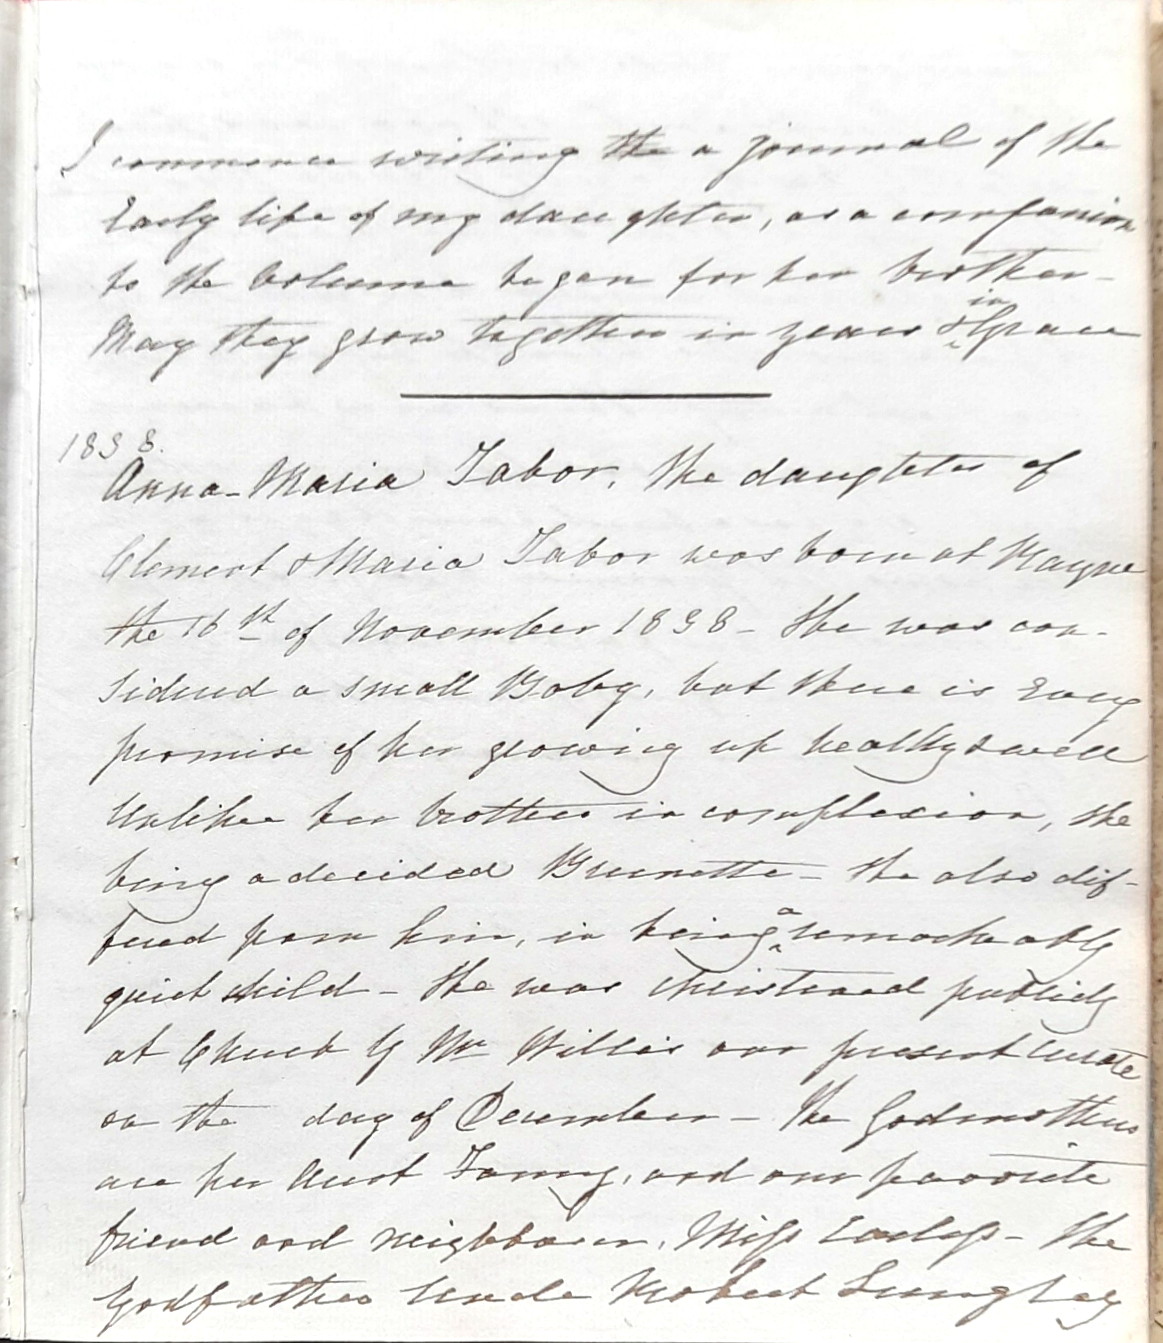 I commence writing the a journal of the
Early life of my daughter, as a companion
to the Volume began for her brother -
in
May they grow together in years & Grace
1838.
Anna-Maria Tabor, the daughter of
Clement & Maria Tabor was born at Rayne
the 16th of November 1838 - She was con-
sidered a small Baby, but there is Every
promise of her growing up healthy & well
Unlike her brother in complexion, she
being a decided Brunette - She also dif-
fered from him, in being a remarkably
quiet child - She was christened publicly
at Church by Mr Willis our present Curate
on the day of December - The Godmothers
are her Aunt Fanny, and our favorite
friend and neighbour, Miss
- The
Godfather Uncle Robert